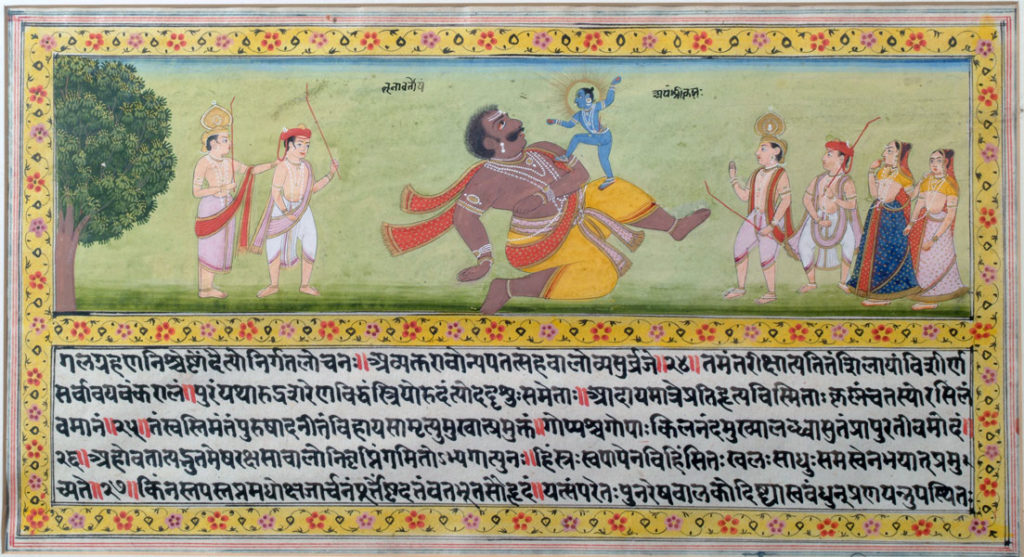 तृनावर्तोयं
अयंश्रीकृष्णः
गलग्रहणनिश्चेष्टोदैत्योनिर्गतलोचनः॥अव्यक्तरावोन्यपतत्सहवालोव्यसुर्व्रजे॥२४॥तमंतरीक्षात्पतितंशिलायांविशीर्ण
सर्वावयवंकरालं॥पुरंयथारुद्रशरेणविद्धंस्त्रियोरुदंत्योददृशुःसमेताः॥प्रादायमात्रेप्रतिहृत्यविस्मिताःकृष्णंचतस्योरसिलं
वमानं॥२५॥तंस्वस्तिमंतंपुरुषादनीतंविहायसामृत्युमुखात्प्रमुक्तं॥गोप्यश्चगोपाःकिलनंदमुख्यालब्ध्वासुतंप्रापुरतीवमोदं॥
२६॥अहोवतात्यद्भुतमेषरक्षसावालोनिवृत्तिंगमितोऽभ्यगात्पुनः॥हिंस्रःस्वपापेनविहिंसितःखलःसाधुःसमत्वेनभयात्प्रमु
च्यते॥२७॥किंनस्तपस्तप्तमधोक्षजार्चनंपूर्तेष्टदत्तंवतभूतसौहृदं॥यत्संपरेतःपुनरेषवालकोदिष्ट्यास्ववंधून्प्रणयन्नुपस्थितः